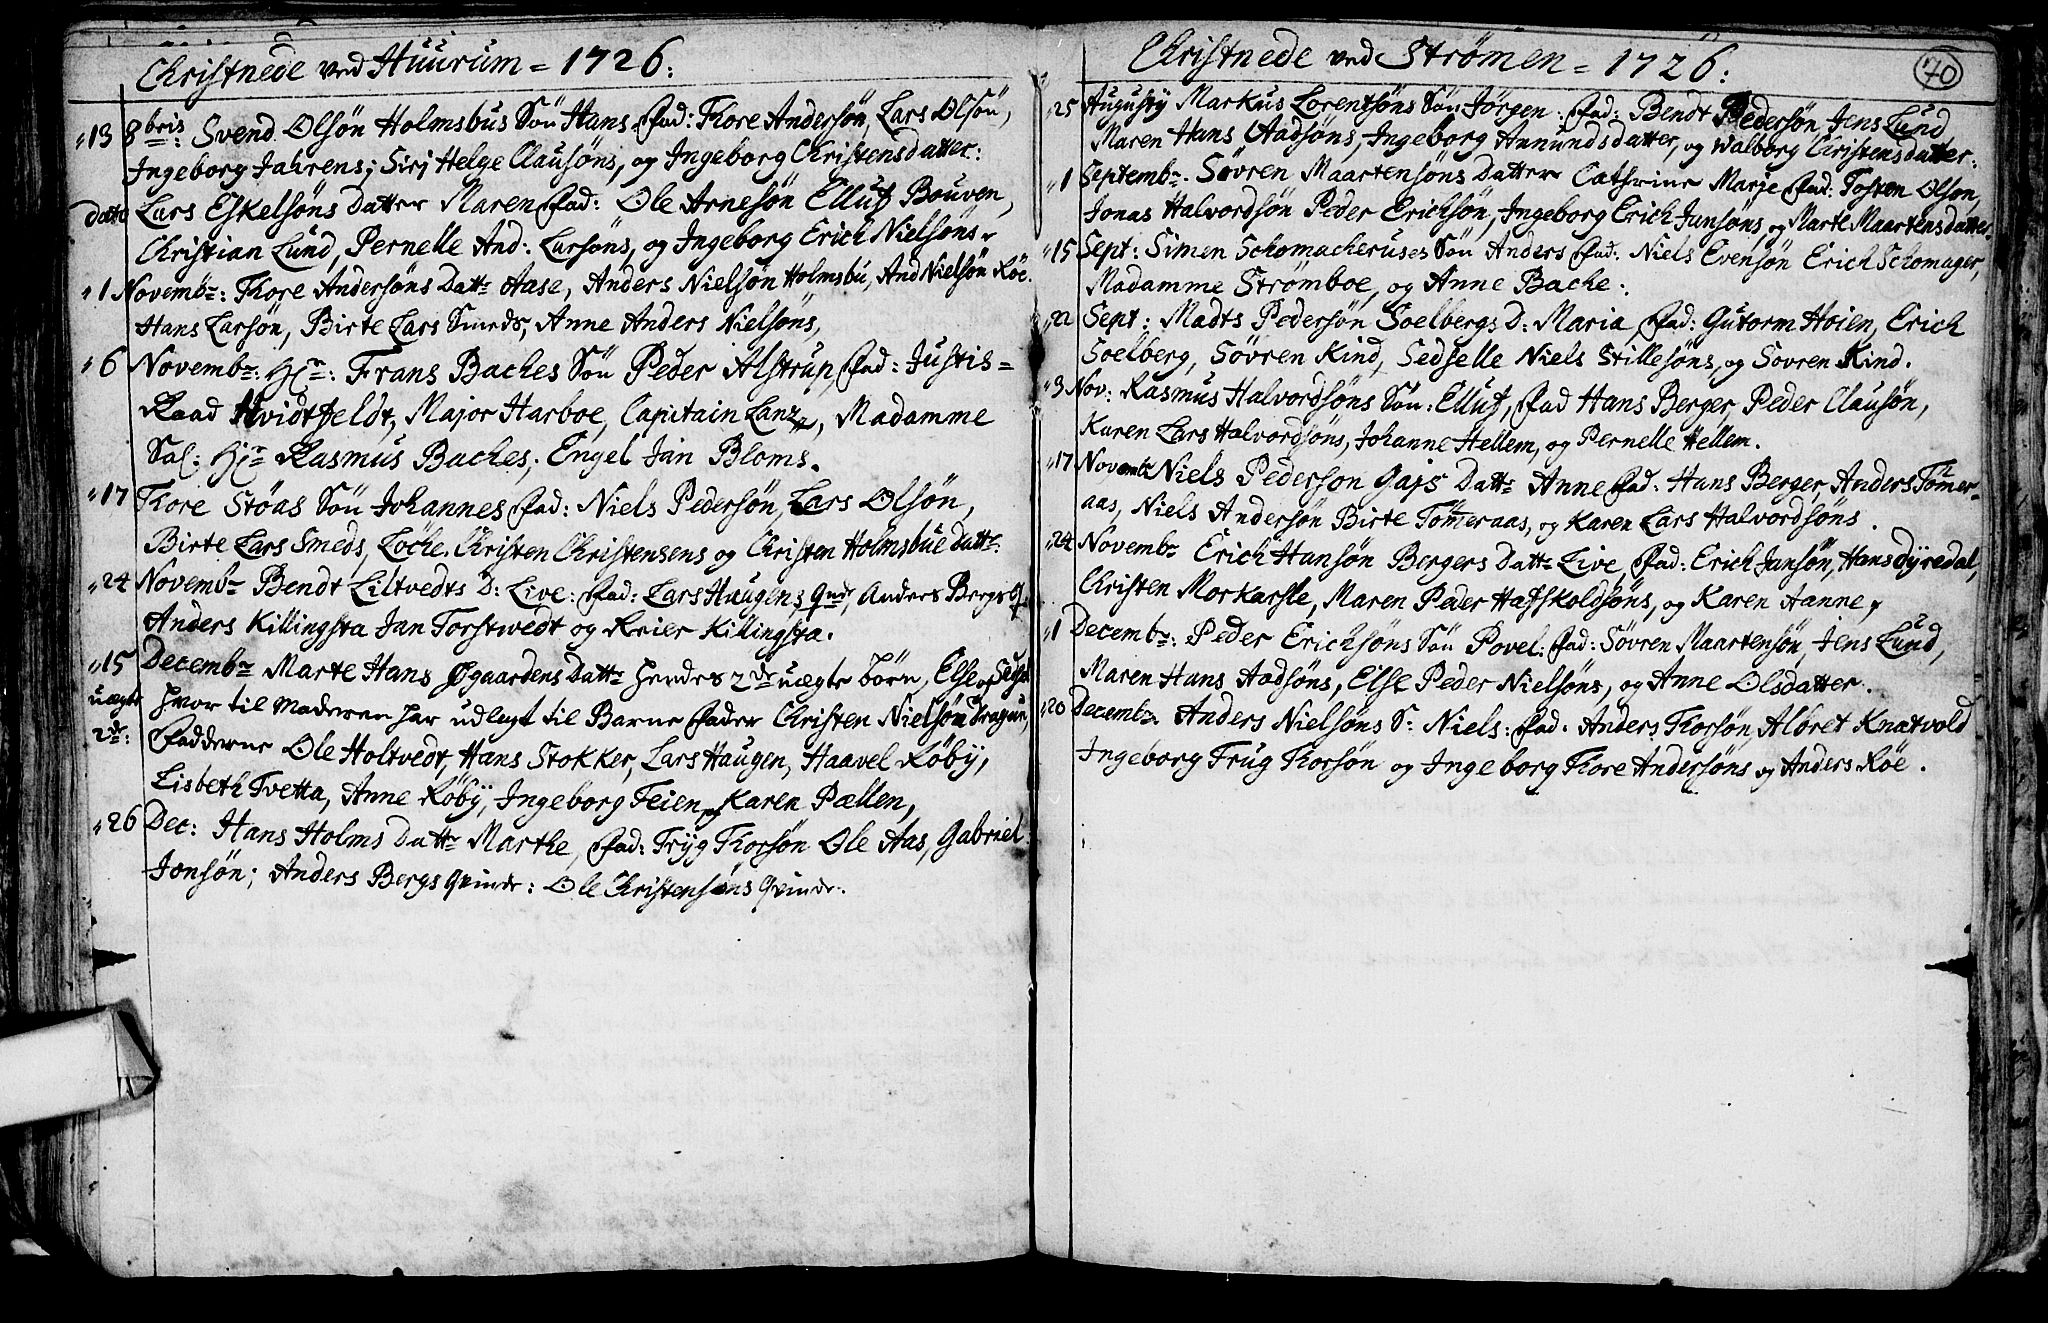 Christnede ved Huurum = 1726:
"13 8bris: Svend Olsøn Holmsbus Søn Hans Fad: Thore Andersøn, Lars Olsøn,
Ingeborg Jahrens; Sirj Helge Clausøns, og Ingeborg Christensdatter:
Datto Lars Eskelsøns Datter Maren Fad: Ole Arnesøn Elluf Bouven,
Christian Lund, Pernelle And: Larsøns, og Ingeborg Erich Nielsøns.
"1 Novembr: Thore Andersøns Dattr Aase, Anders Nielsøn Holmsbu, And Nielsøn Røe.
Hans Larsøn, Birte Lars Smeds, Anne Anders Nielsøns,
"6 Novembr: Hr: Frans Baches Søn Peder Alstrup, Fad: Justis=
Raad Hvidtfeldt, Major Harboe, Capitain Lanz, Madamme
Sal: Hr Rasmus Baches, Engel Jan Bloms.
"17 Thore Støas Søn Johannes Fad: Niels Pedersøn, Lars Olsøn,
Birte Lars Smeds, Løche Christen Christensens og Christen Holmsbue Dattr.
"24 Novembr Bendt Liltvedts D: Live: Fad: Lars Haugens Qnd, Anders Bergs Q
Anders Killingsta Jan Torstwedt og Reier Killingsta.
"15 Decembr Marte Hans Øgaardens Dattr hendes 2de uægte børn, Else og
uægte hvor til Moderen har udlagt til Barne Fader Christen Nielsøn Dragun,
2de: Fadderne Ole Holtvedt, Hans Stokker, Lars Haugen, Haavel Røby,
Lisbeth Tvetta, Anne Røby, Ingeborg Teien og Karen Pællen,
"26 Dec: Hans Holms Dattr Marthe, Fad: Tryg Thorsøn Ole Aas, Gabriel
Jonsøn; Anders Bergs Qvinde: Ole Christensøns Qvinde.
Christnede ved Strømen = 1726:
70
"25 Augusty Markus Lorentsøns Søn Jørgen: Fad: Bendt Pedersøn Jens Lund,
Maren Hans Aadsøns, Ingeborg Anundsdatter, og Walborg Christensdatter:
"1 Septembr. Søvren Maartensøns Datter Cathrine Marje Fad: Tosten Olson,
Jonas Halvordsøn Peder Ericksøn, Ingeborg Erich Jansøns og Marte Maartensdatter.
"15 Sept: Simen Schomacheruses Søn Anders Fad: Niels Evensøn Erich Schomager,
Madamme Strømboe, og Anne Bache:
"22 Sept: Madts Pedersøn Soelbergs D: Maria Fad: Gutorm Høien, Erich
Soelberg, Søvren Kind, Sedselle Niels Stillesøns, og Sovren Kind.
"3 Nov: Rasmus Halvordsøns Søn: Elluf, Fad Hans Berger, Peder Clausøn,
Karen Lars Halvordsøns, Johanne Hellem, og Pernelle Hellem.
"17 Novembr Niels Pederson Gajs Dattr Anne Fad: Hans Berger, Anders Tømer-
aas, Niels Andersøn Birte Tømeraas, og Karen Lars Halvordsøns.
"24 Novembr Erich Hansøn Bergers Dattr Live, Fad: Erich Jansøn, Hans Dyredal,
Christen Morkarsle, Maren Peder Hafskoldsøns, og Karen Aanne,
"1 Decembr: Peder Ericksøns Søn Povel: Fad: Søvren Maartensøn, Jens Lund,
Maren Hans Aadsøns, Else Peder Nielsøns, og Anne Olsdatter.
"20 Decembr. Anders Nielsøns S: Niels: Fad: Anders Thorsøn, Albret Knatvold
Ingeborg Trug Thorsøn og Ingeborg Thore Andersøns og Anders Røe.